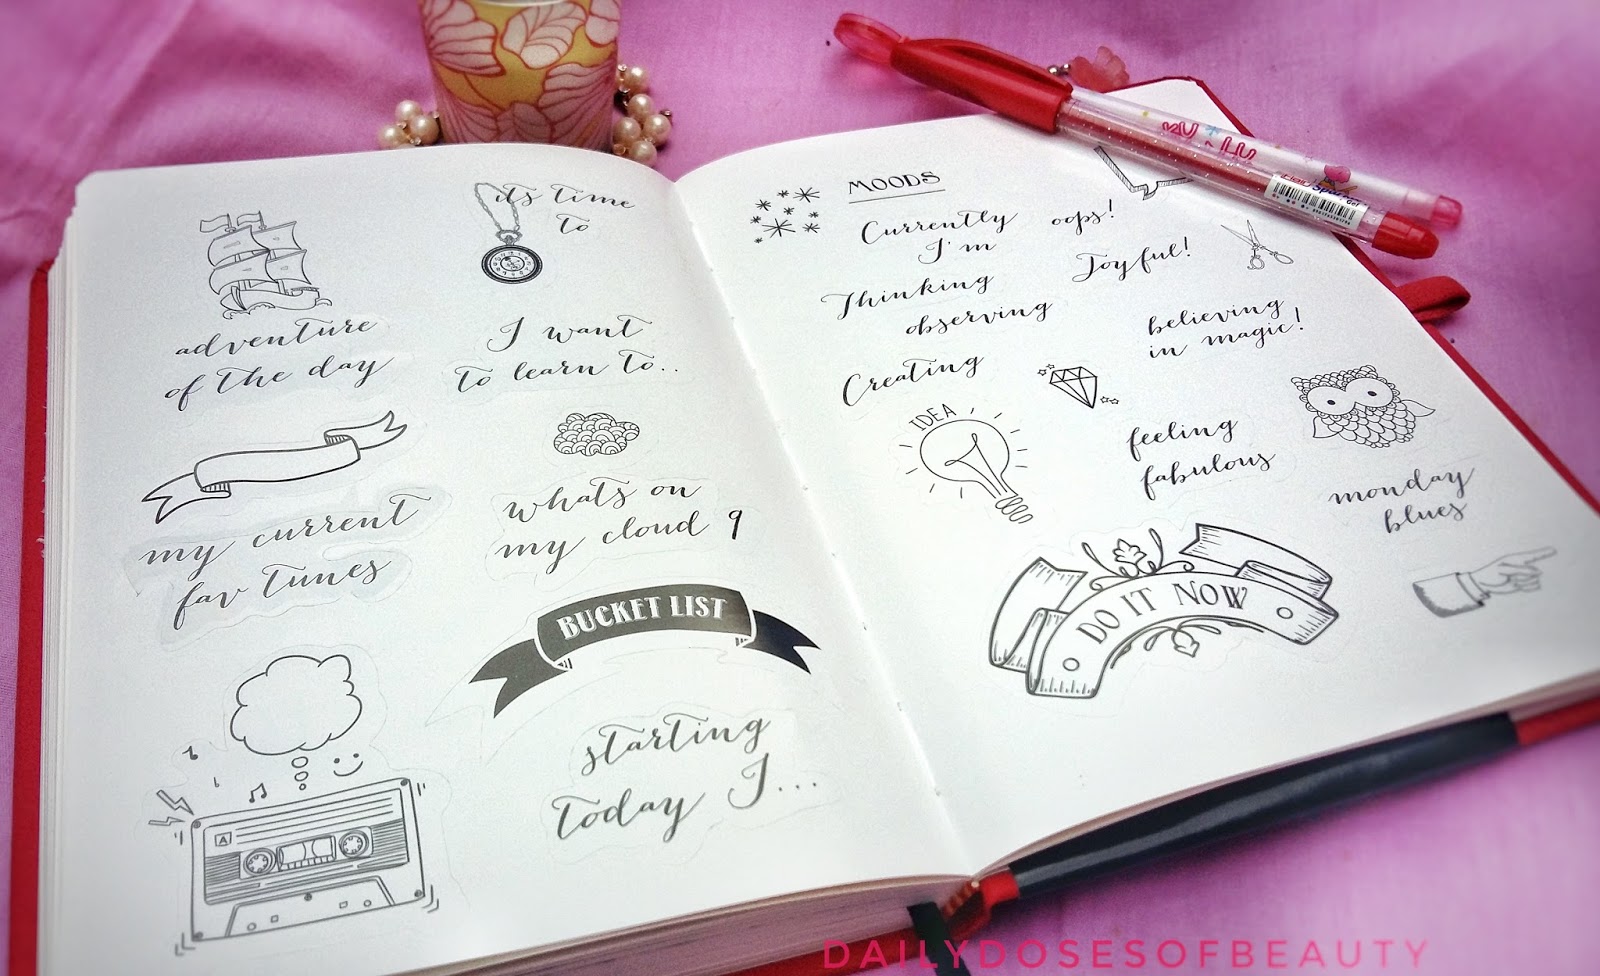 its time
to
adventure
of the day
I want
to learn to..
my current
fav tunes
whats on
my cloud 9
BUCKET LIST
A
starting
today I...
MOODS
Currently
I'm
oops!
Thinking
observing
Joyful!
believing
in magic!
Creating
IDEA
feeling
fabulous
monday
blues
DO IT NOW
DAILYDOSESOFBEAUTY